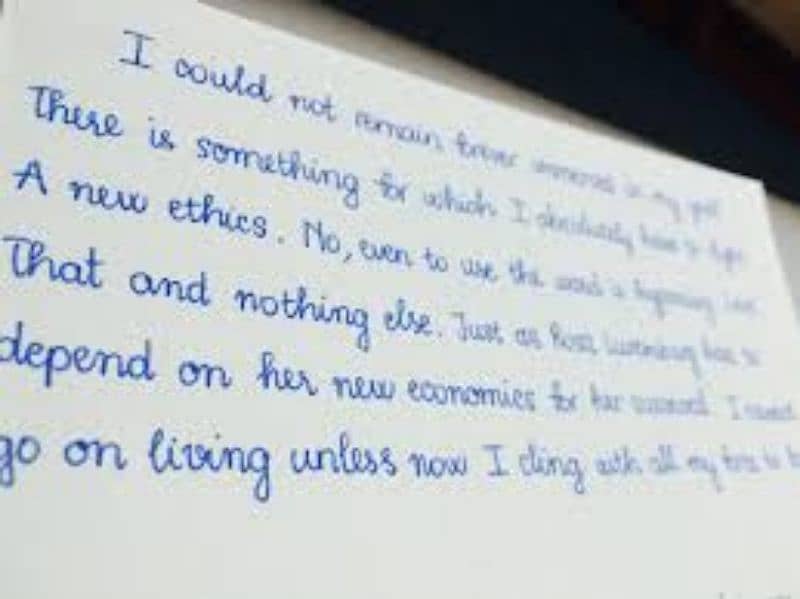 I could not remain forever immersed in my
There is something for which I absolutely have to
A new ethics. No, even to use the word is
That and nothing else. Just as Rosa Luxemburg has to
depend on her new economics for her I cannot
go on living unless now I cling with all my force to